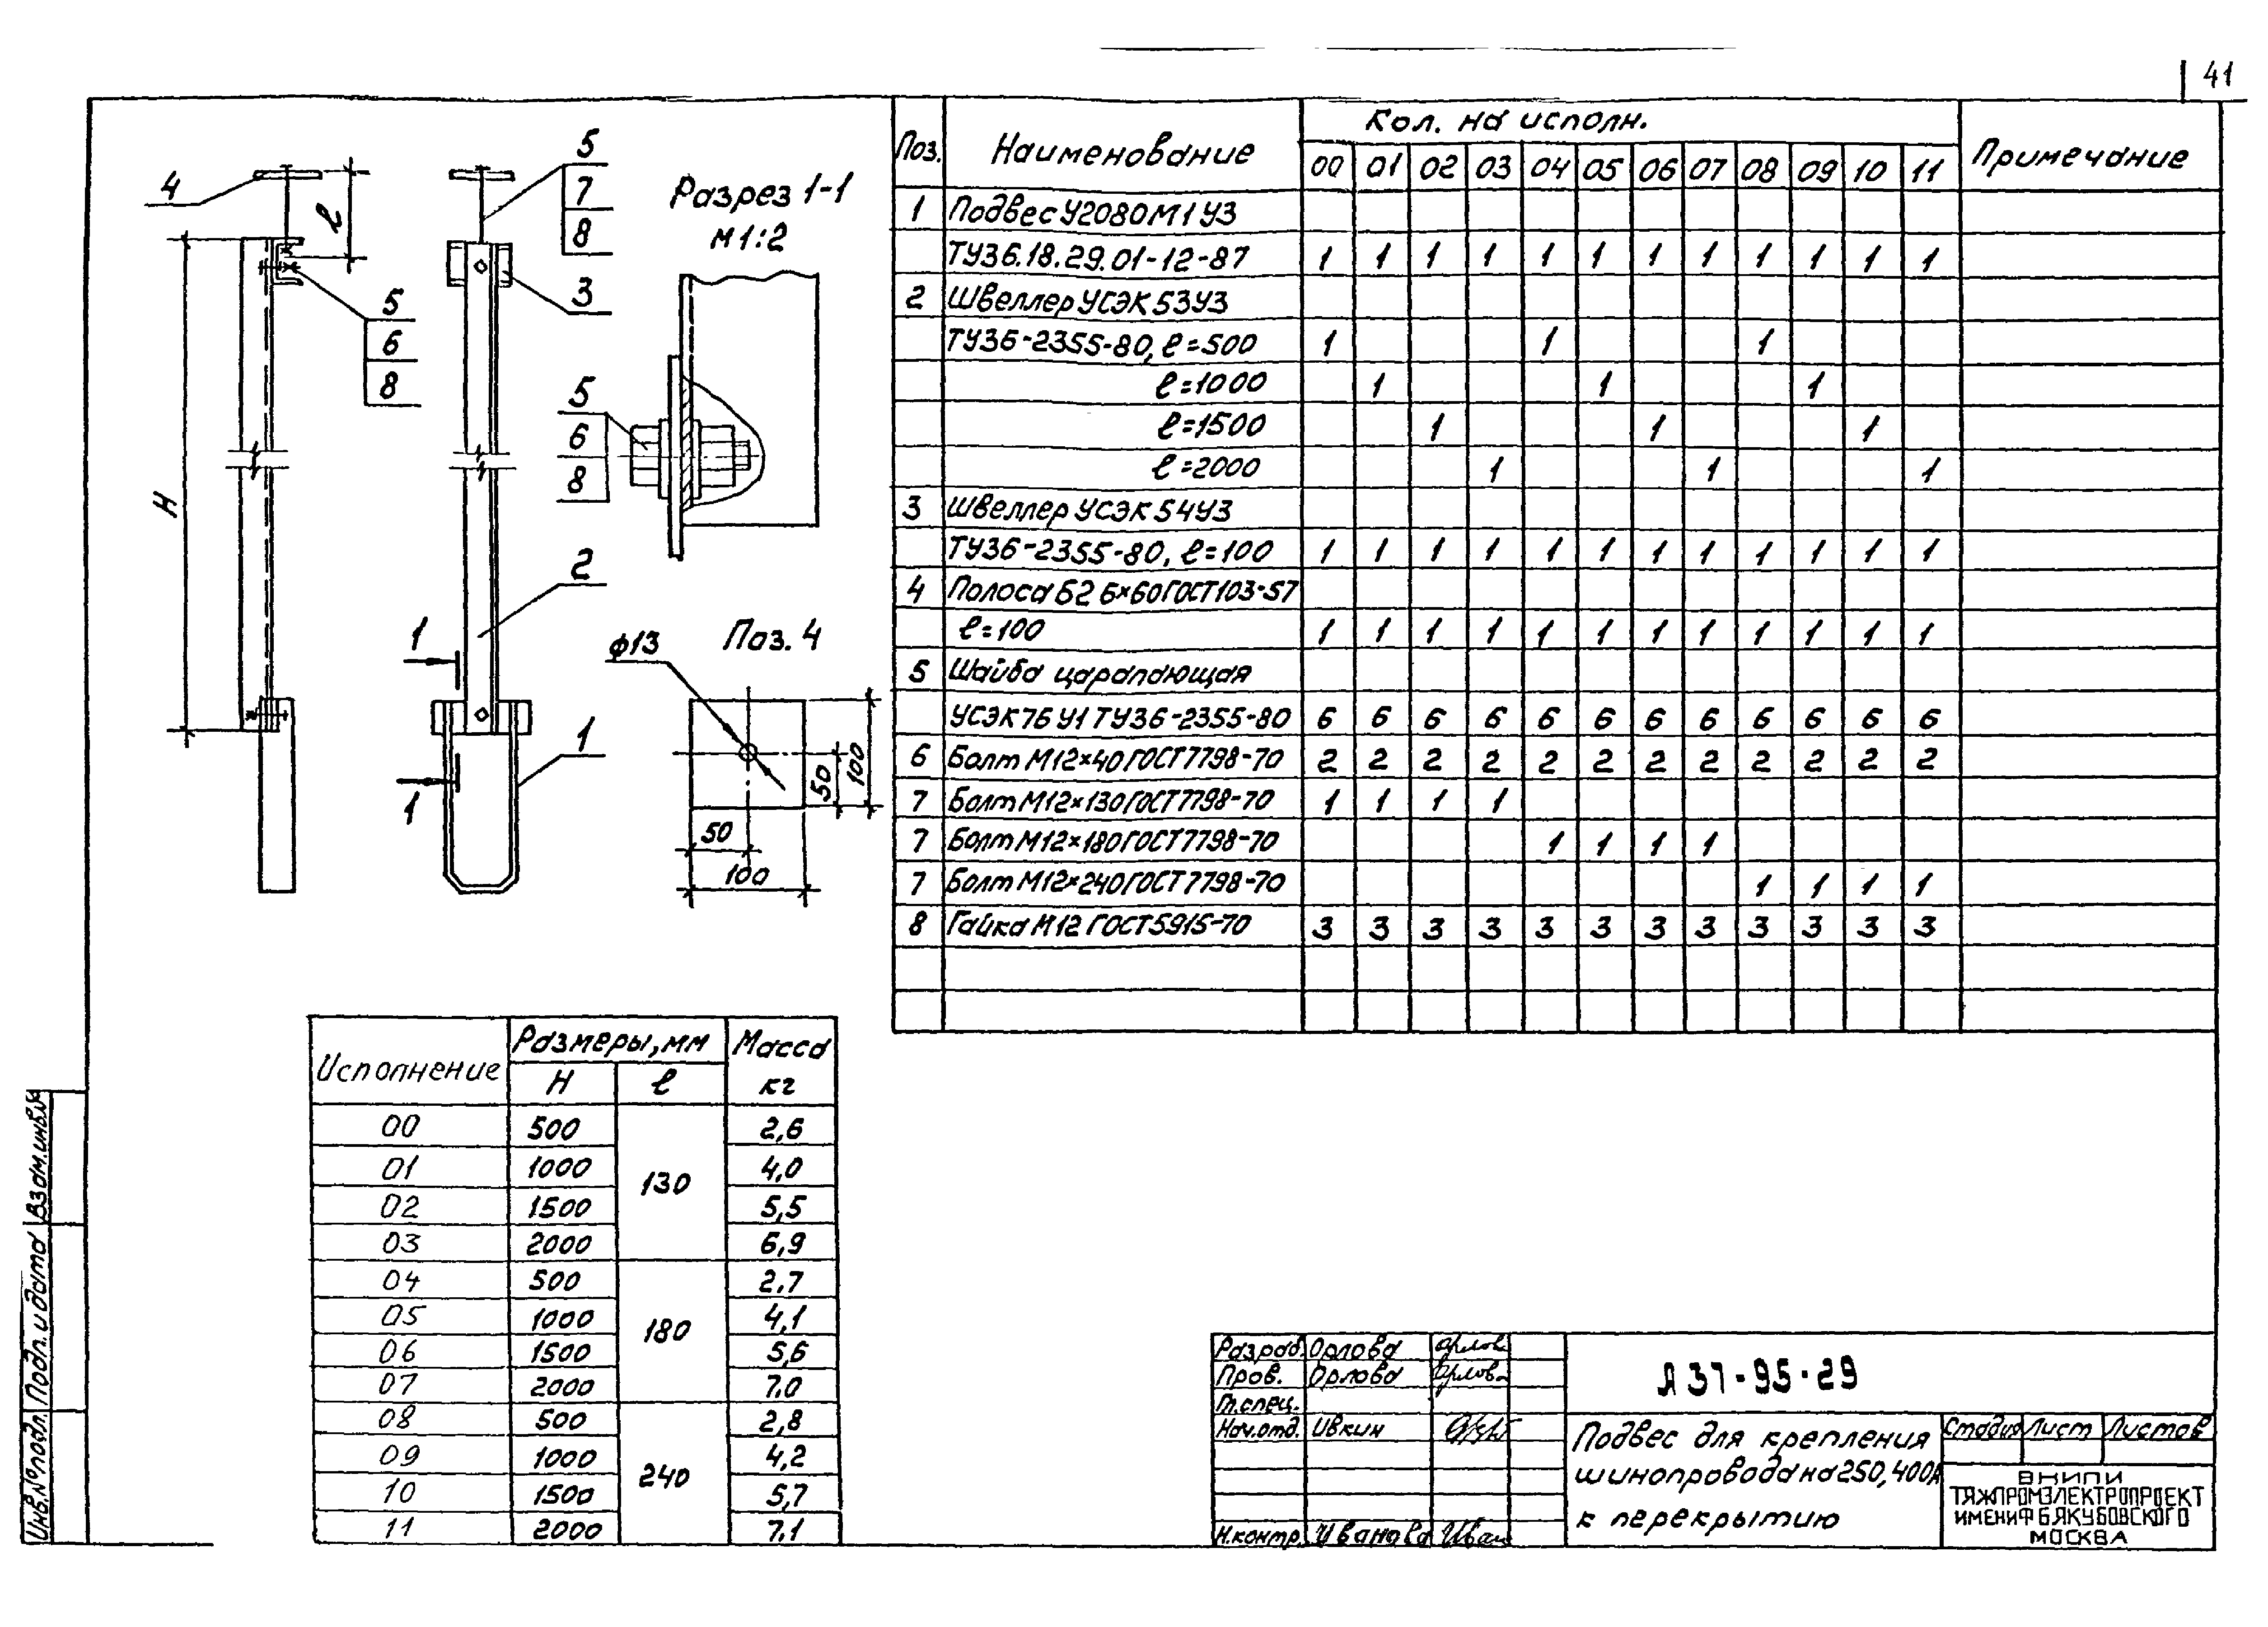 41
4
5
7
8
ℓ
3
5
6
8
H
2
1
1
1
Разрез 1-1
М 1:2
5
6
8
Поз. 4
ф13
50
100
50
100
Поз. Наименование Кол. на исполн. Примечание
00 01 02 03 04 05 06 07 08 09 10 11
1 Подвес У2080М1 У3
ТУ36.18.29.01-12-87 1 1 1 1 1 1 1 1 1 1 1 1
2 Швеллер УСЭК 53У3
ТУ36-2355-80, ℓ=500 1 1 1
ℓ=1000 1 1 1
ℓ=1500 1 1 1
ℓ=2000 1 1 1
3 Швеллер УСЭК 54У3
ТУ36-2355-80, ℓ=100 1 1 1 1 1 1 1 1 1 1 1 1
4 Полоса Б2 6×60 ГОСТ103-57
ℓ=100 1 1 1 1 1 1 1 1 1 1 1 1
5 Шайба царапающая
УСЭК 76 У1 ТУ36-2355-80 6 6 6 6 6 6 6 6 6 6 6 6
6 Болт М12×40 ГОСТ7798-70 2 2 2 2 2 2 2 2 2 2 2 2
7 Болт М12×130 ГОСТ7798-70 1 1 1 1
7 Болт М12×180 ГОСТ7798-70 1 1 1 1
7 Болт М12×240 ГОСТ7798-70 1 1 1 1
8 Гайка М12 ГОСТ5915-70 3 3 3 3 3 3 3 3 3 3 3 3
Исполнение Размеры, мм Масса
H ℓ кг
00 500 130 2,6
01 1000 4,0
02 1500 5,5
03 2000 6,9
04 500 180 2,7
05 1000 4,1
06 1500 5,6
07 2000 7,0
08 500 240 2,8
09 1000 4,2
10 1500 5,7
11 2000 7,1
Инв.№ подл. Подп. и дата Взам.инв.№
Разраб. Орлова Орлова
Пров. Орлова Орлова
Гл.спец.
Нач.отд. Ивкин
Н.контр. Иванова Иван
А 37-95-29
Подвес для крепления
шинопровода на 250, 400А
к перекрытию
Стадия Лист Листов
ВНИПИ
ТЯЖПРОМЭЛЕКТРОПРОЕКТ
ИМЕНИ Ф.Б.ЯКУБОВСКОГО
МОСКВА